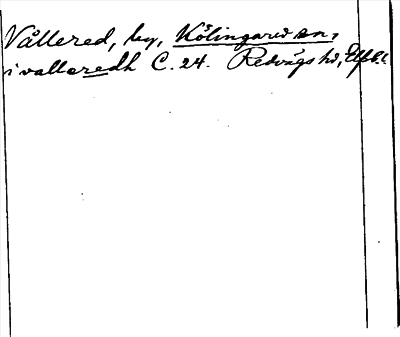 Vållered, by, Kölingared sn,
i valleredh C. 24. Redvägs hd, Elfsb. l.